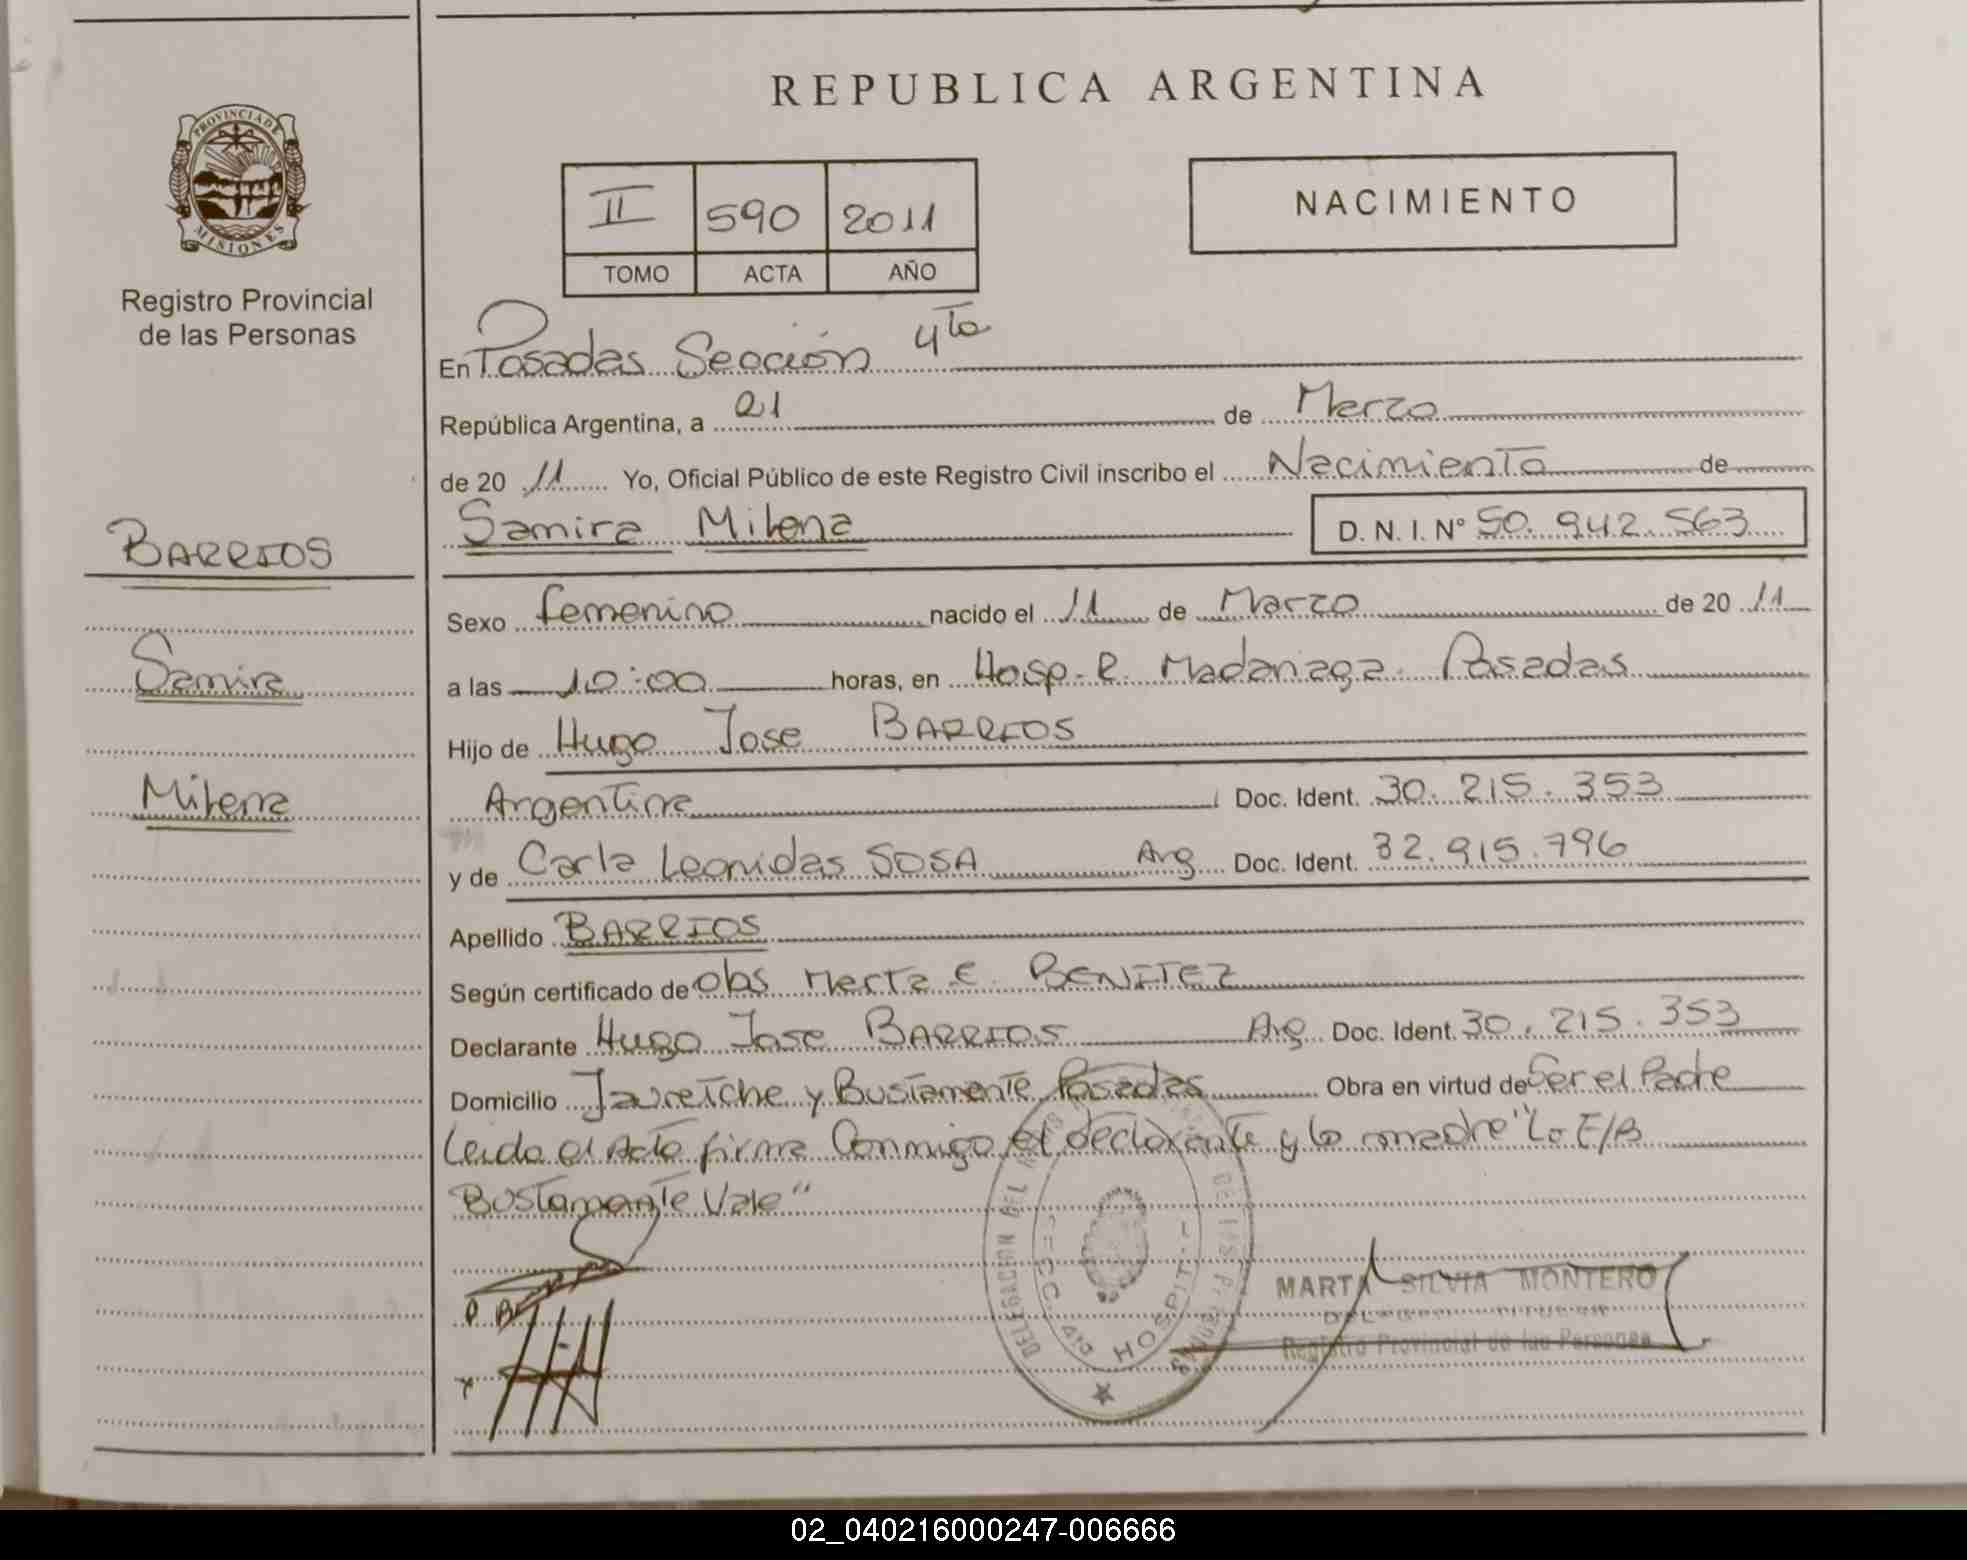 REPUBLICA ARGENTINA
PROVINCIA DE MISIONES
Registro Provincial
de las Personas
II 590 2011
TOMO ACTA AÑO
NACIMIENTO
En Posadas Sección 4ta
República Argentina, a 21 de Marzo
de 20 11 Yo, Oficial Público de este Registro Civil inscribo el Nacimiento de
Samira Milena D. N. I. Nº 50.942.563
BARRIOS
Samira
Milena
Sexo femenino nacido el 11 de Marzo de 20 11
a las 10:00 horas, en Hosp. R. Madariaga. Posadas
Hijo de Hugo Jose BARRIOS
Argentina Doc. Ident. 30.215.353
y de Carla Leonidas SOSA Arg Doc. Ident. 32.915.796
Apellido BARRIOS
Según certificado de Obs Marta E. BENITEZ
Declarante Hugo Jose BARRIOS Arg Doc. Ident. 30.215.353
Domicilio Jauretche y Bustamante Posadas Obra en virtud de Ser el Padre
Leida el Acta firma Conmigo el declarante y la madre "Lo E/B
Bustamante Vale"
DELEGACION DEL DE LAS PERSONAS
SECC. 4ta HOSPIT.
MARTA SILVIA MONTERO
Registro Provincial de las Personas
02_040216000247-006666